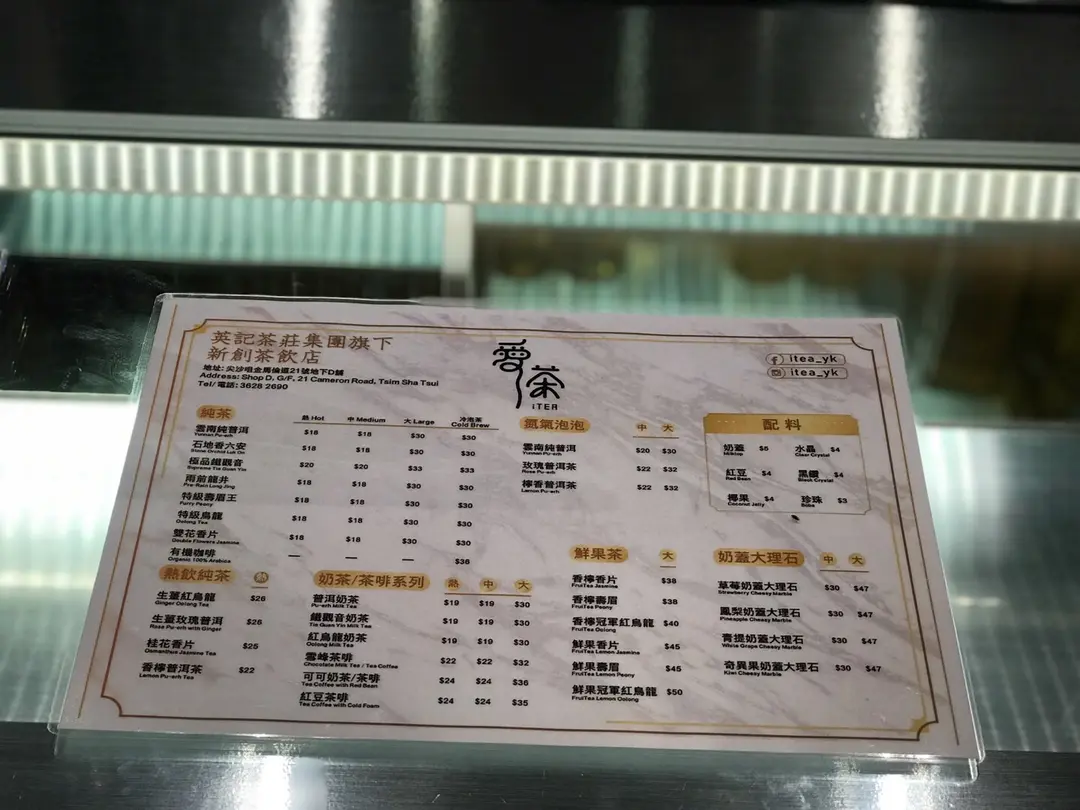 英記茶莊集團旗下
新創茶飲店
地址: 尖沙咀金馬倫道21號地下D舖
Address: Shop D, G/F, 21 Cameron Road, Tsim Sha Tsui
Tel/ 電話: 3628 2690
愛茶
iTEA
itea_yk
itea_yk
純茶 熱 Hot 中 Medium 大 Large 冷泡茶 Cold Brew
雲南純普洱 $18 $18 $30 $30
Yunnan Pu-erh
石地香六安 $18 $18 $30 $30
Stone Orchid Luk On
極品鐵觀音 $20 $20 $33 $33
Supreme Tie Guan Yin
雨前龍井 $18 $18 $30 $30
Pre-Rain Long Jing
特級壽眉王 $18 $18 $30 $30
Furry Peony
特級烏龍 $18 $18 $30 $30
Oolong Tea
雙花香片 $18 $18 $30 $30
Double Flowers Jasmine
有機咖啡 — — — $36
Organic 100% Arabica
氮氣泡泡 中 大
雲南純普洱 $20 $30
Yunnan Pu-erh
玫瑰普洱茶 $22 $32
Rose Pu-erh
檸香普洱茶 $22 $32
Lemon Pu-erh
配料
奶蓋 $6 水晶 $4
Milktop Clear Crystal
紅豆 $4 黑鑽 $4
Red Bean Black Crystal
椰果 $4 珍珠 $3
Coconut Jelly Boba
熱飲純茶 熱
生薑紅烏龍 $26
Ginger Oolong Tea
生薑玫瑰普洱 $26
Rose Pu-erh with Ginger
桂花香片 $25
Osmanthus Jasmine Tea
香檸普洱茶 $22
Lemon Pu-erh Tea
奶茶/茶啡系列 熱 中 大
普洱奶茶 $19 $19 $30
Pu-erh Milk Tea
鐵觀音奶茶 $19 $19 $30
Tie Guan Yin Milk Tea
紅烏龍奶茶 $19 $19 $30
Oolong Milk Tea
雪峰茶啡 $22 $22 $32
Chocolate Milk Tea / Tea Coffee
可可奶茶/茶啡 $24 $24 $36
Tea Coffee with Red Bean
紅豆茶啡 $24 $24 $35
Tea Coffee with Cold Foam
鮮果茶 大
香檸香片 $38
FruiTea Jasmine
香檸壽眉 $38
FruiTea Peony
香檸冠軍紅烏龍 $40
FruiTea Oolong
鮮果香片 $45
FruiTea Lemon Jasmine
鮮果壽眉 $45
FruiTea Lemon Peony
鮮果冠軍紅烏龍 $50
FruiTea Lemon Oolong
奶蓋大理石 中 大
草莓奶蓋大理石 $30 $47
Strawberry Cheesy Marble
鳳梨奶蓋大理石 $30 $47
Pineapple Cheesy Marble
青提奶蓋大理石 $30 $47
White Grape Cheesy Marble
奇異果奶蓋大理石 $30 $47
Kiwi Cheesy Marble